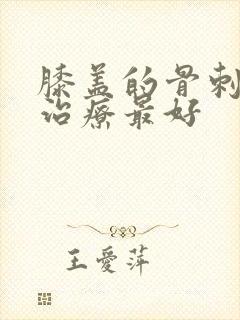 膝盖的骨刺
治疗最好
王爱萍